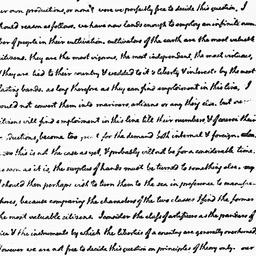 our own productions, or none? were we perfectly free to decide this question, I
should reason as follows. we have now lands enough to employ an infinite num
ber of people in their cultivation. cultivators of the earth are the most valuable
citizens. they are the most vigorous, the most independant, the most virtuous,
& they are tied to their country & wedded to it's liberty & interests by the most
lasting bands. as long therefore as they can find emploiment in this line, I
would not convert them into mariners, artisans or any thing else. but our
citizens will find emploiment in this line till their numbers, & of course their
productions, become too great for the demand both internal & foreign.
this is not the case as yet, & probably will not be for a considerable time.
as soon as it is, the surplus of hands must be turned to something else. 
I should then perhaps wish to turn them to the sea in preference to manufac-
tures, because comparing the characters of the two classes I find the former
the most valuable citizens. I consider the class of artificers as the panders of
vice & the instruments by which the liberties of a country are generally overturned.
however we are not free to decide this question on principles of theory only. our